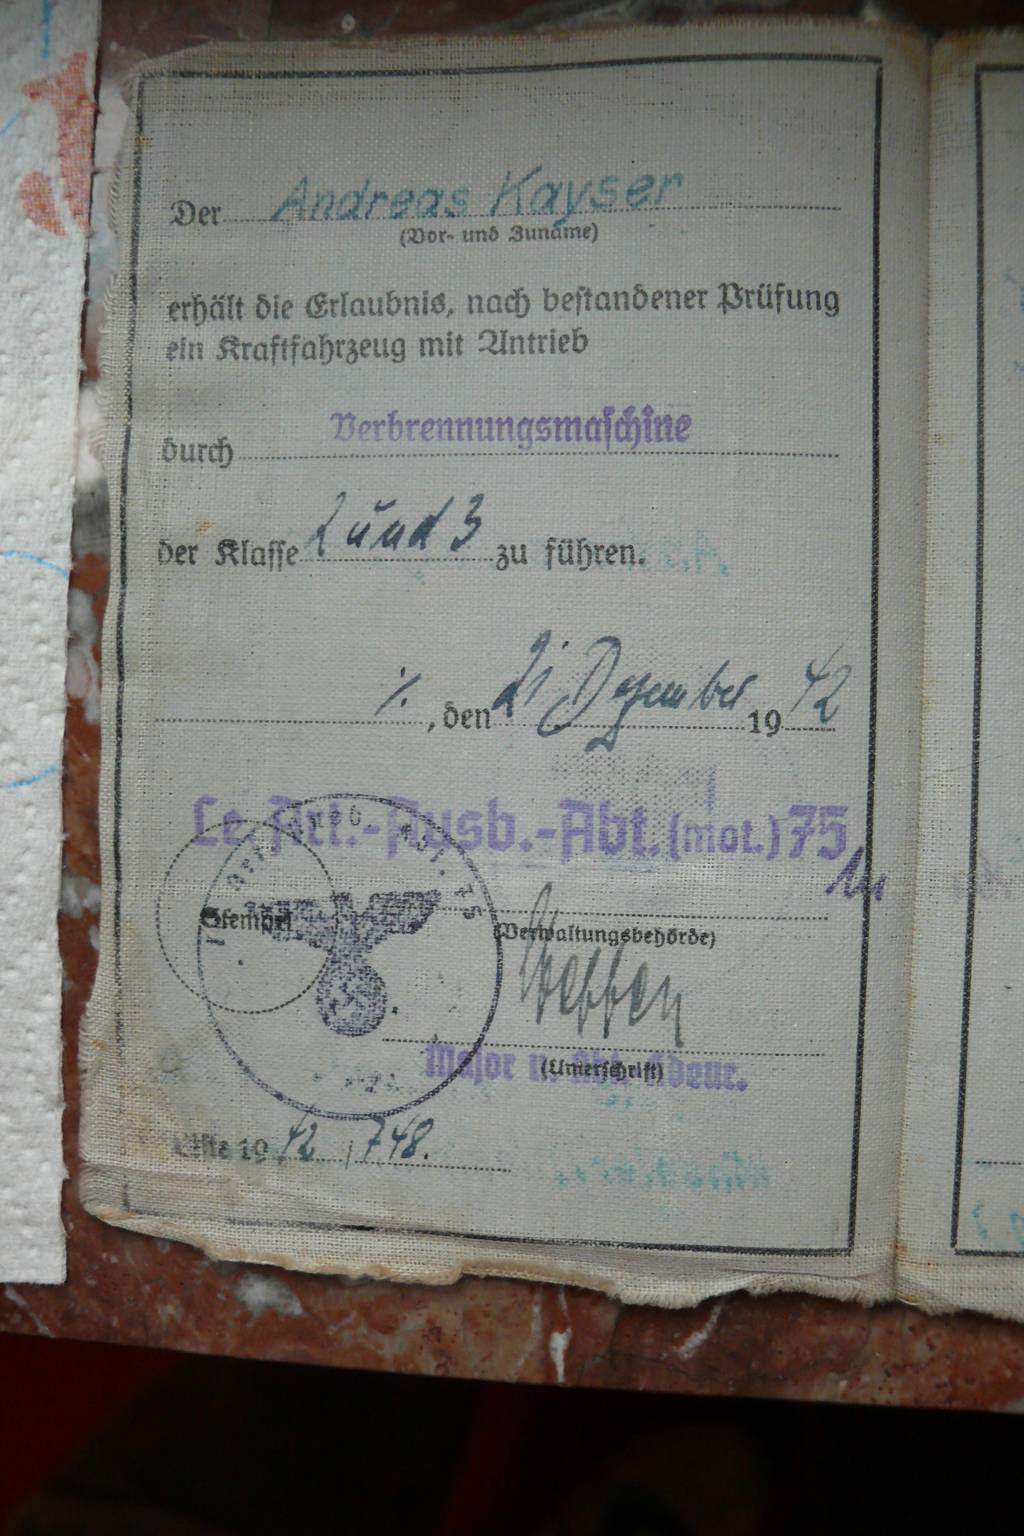 Der Andreas Kayser
(Vor- und Zuname)
erhält die Erlaubnis, nach bestandener Prüfung
ein Kraftfahrzeug mit Antrieb
durch Verbrennungsmaschine
der Klasse 2 und 3 zu führen.
, den 21 Dezember 1942
Le. Art.-Ausb.-Abt. (mot.) 75
Stempel
(Verwaltungsbehörde)
(Unterschrift)
Major u. Abt. Kdeur.
Liste 1942 / 748.